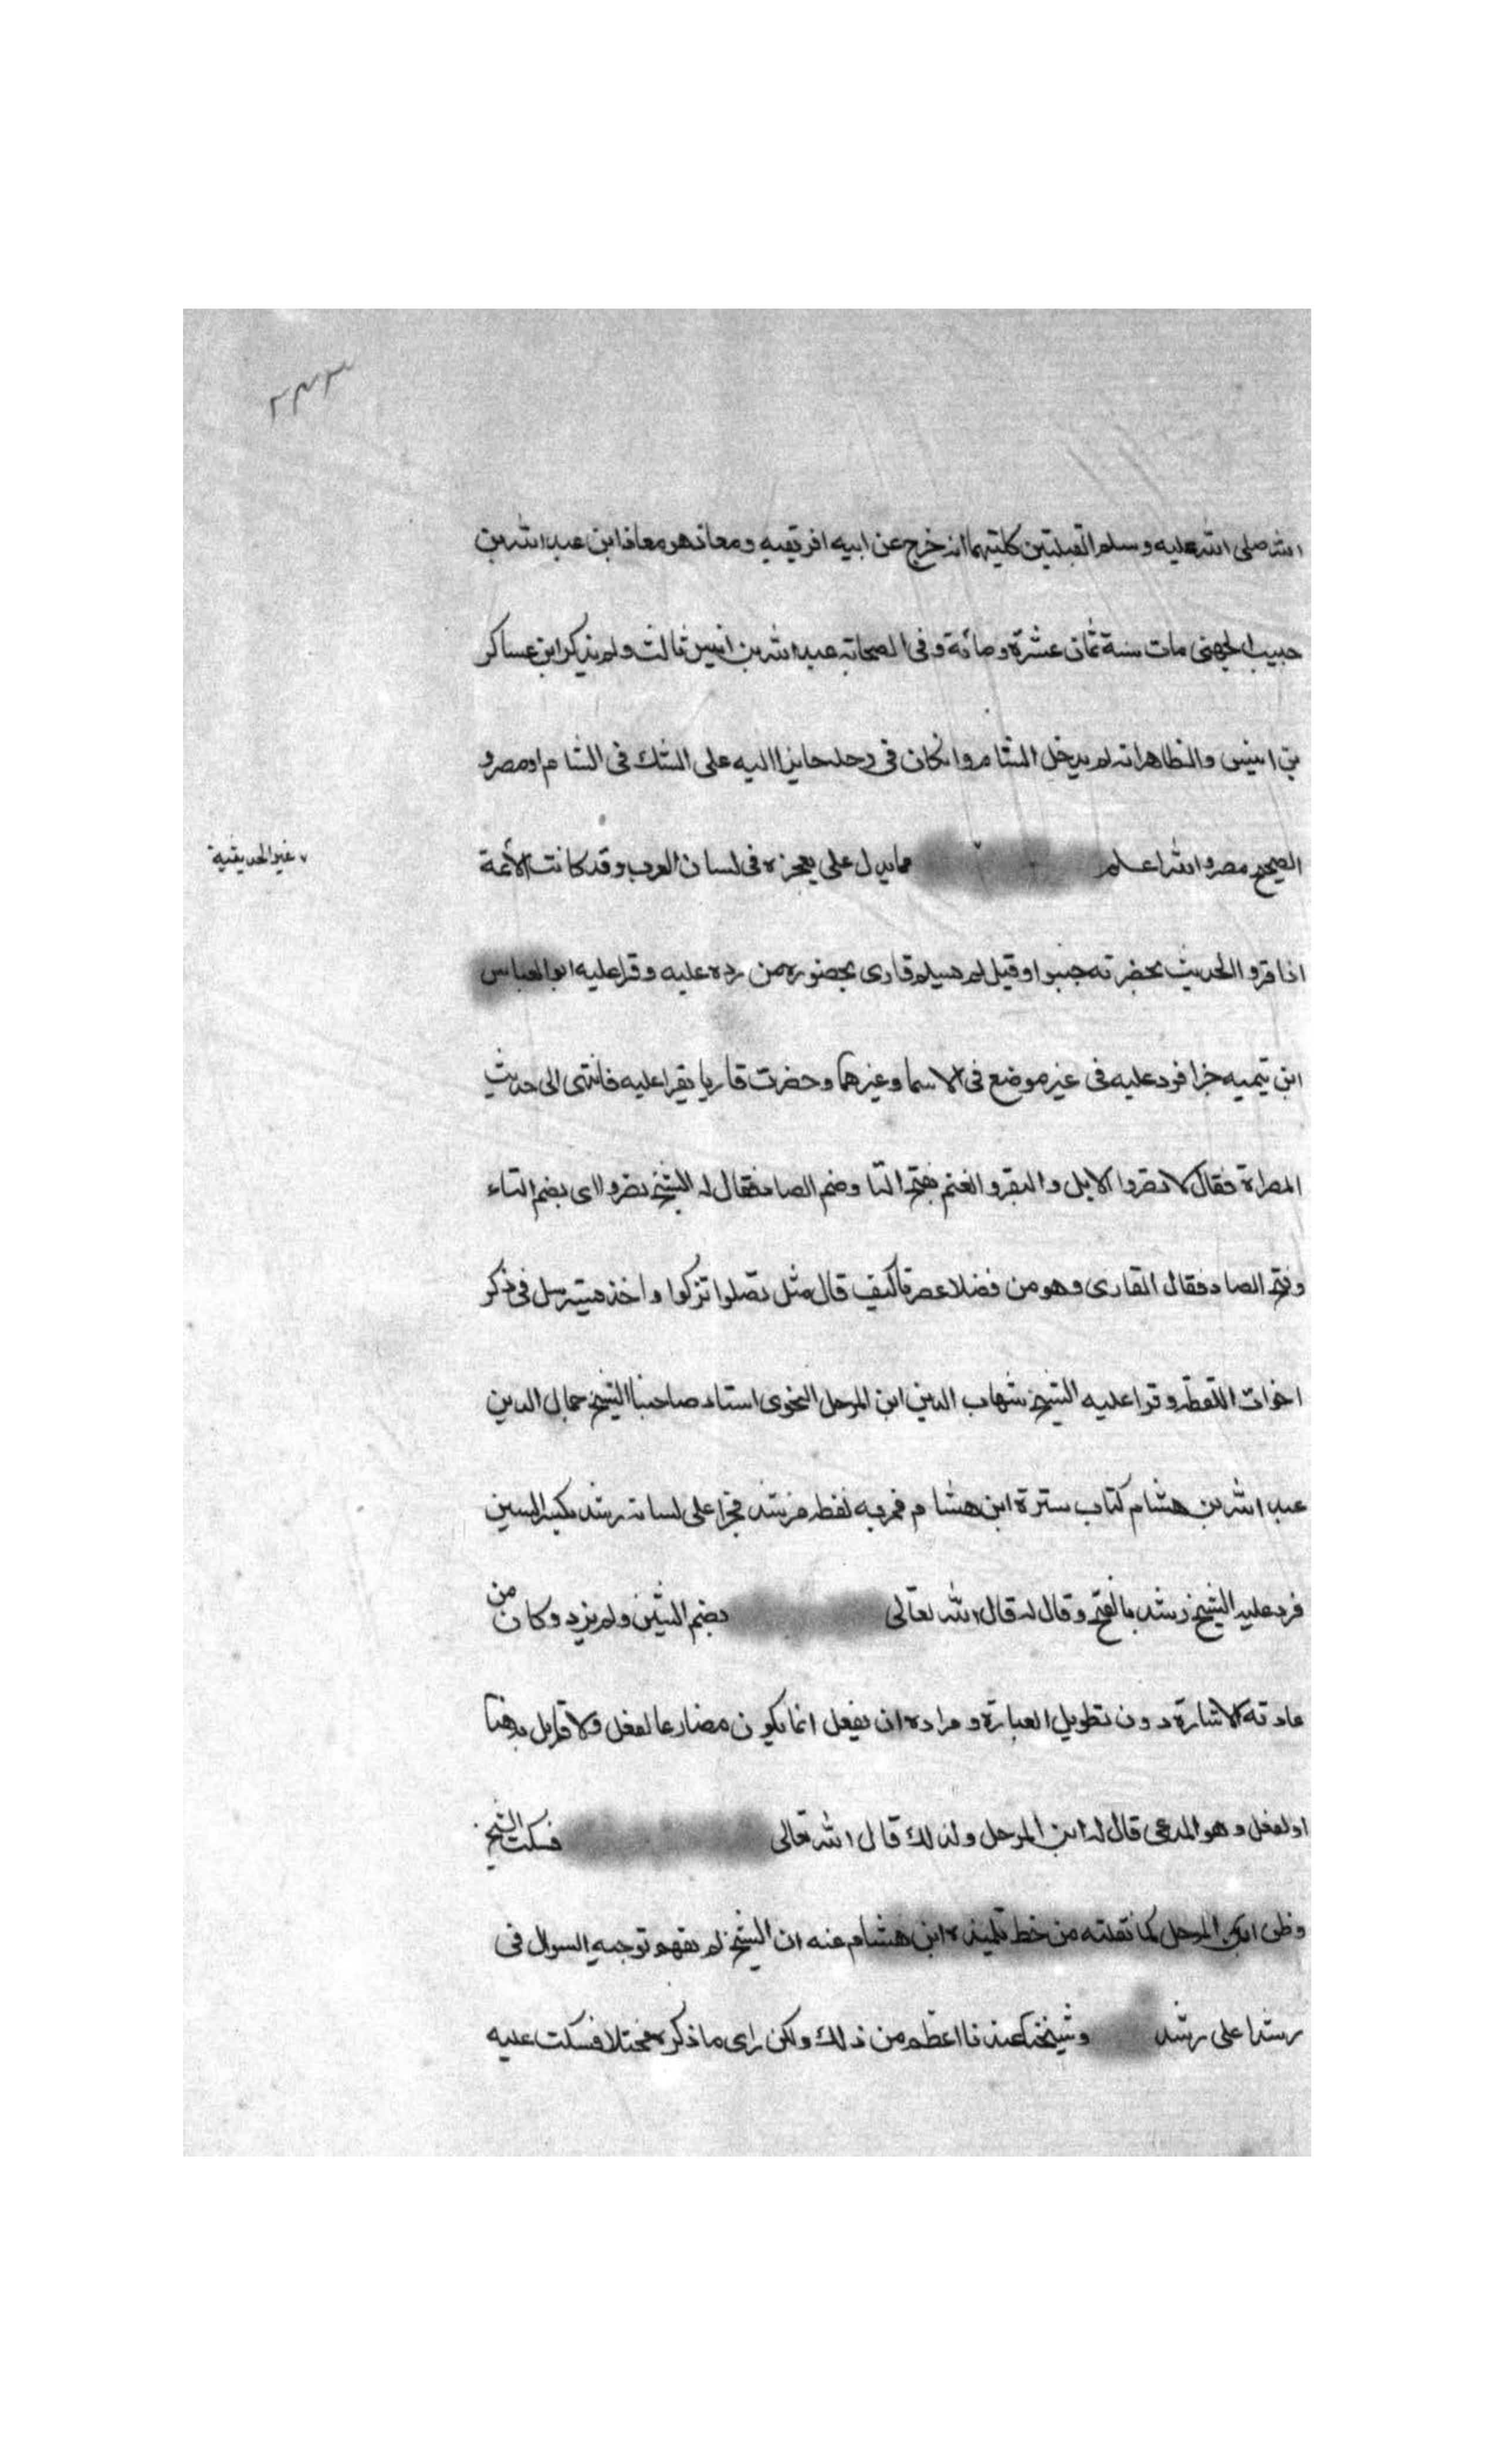 ٢٤٣
الله صلى الله عليه وسلم القبلتين كلتيهما انه خرج عن ابيه افريقيه ومعاذ هو معاذ ابن عبد الله بن
حبيب الجهني مات سنة ثمان عشرة ومائة وفي الصحابه عبد الله بن انيس ثالث ولم يذكر ابن عساكر
بن انيس والظاهر انه لم يدخل الشام وانكان في رحله جابر اليه على الشك في الشام او مصر و
الصحيح مصر والله اعلم مما يدل على يعجزه في لسان العرب وقد كانت الأئمة
٧ غير الحديثية
اذا قرو الحديث بحضرته جبنوا وقيل لم يسلم قارى بحضوره من رده عليه وقرا عليه ابو العباس
ابن تيميه جزا فرد عليه في غير موضع في الاسما وغيرها وحضرت قاريا يقرا عليه فانتهى الى حديث
المصراة فقال لا تصروا الابل والبقر والغنم بفتح التا وضم الصاد فقال له الشيخ تصروا اى بضم التاء
وفتح الصاد فقال القارى وهو من فضلا عصرنا كيف قال مثل تصلوا تزكوا واخذ يسترسل في ذكر
اخوات اللفظه وقرا عليه الشيخ شهاب الدين ابن المرحل النحوى استاد صاحبنا الشيخ جمال الدين
عبد الله بن هشام كتاب سيرة ابن هشام فمر به لفظه رشد فجرا على لسانه رشد بكسر الشين
فرد عليه الشيخ رشد بالفتح وقال له قال الله تعالى بضم الشين ولم يزد وكان من
عادته الاشارة دون تطويل العبارة ومراده ان يفعل انما يكون مضارعا لفعل ولا قايل به هنا
او لفعل وهو المدعى قال له ابن المرحل ولذلك قال الله تعالى فسكت الشيخ
وظن ابن المرحل كما نقلته من خط تلميذه ابن هشام عنه ان الشيخ لم يفهم توجيه السوال في
رشدا على رشد وشيخنا عندنا اعظم من ذلك ولكن راى ما ذكره مختلا فسكت عليه